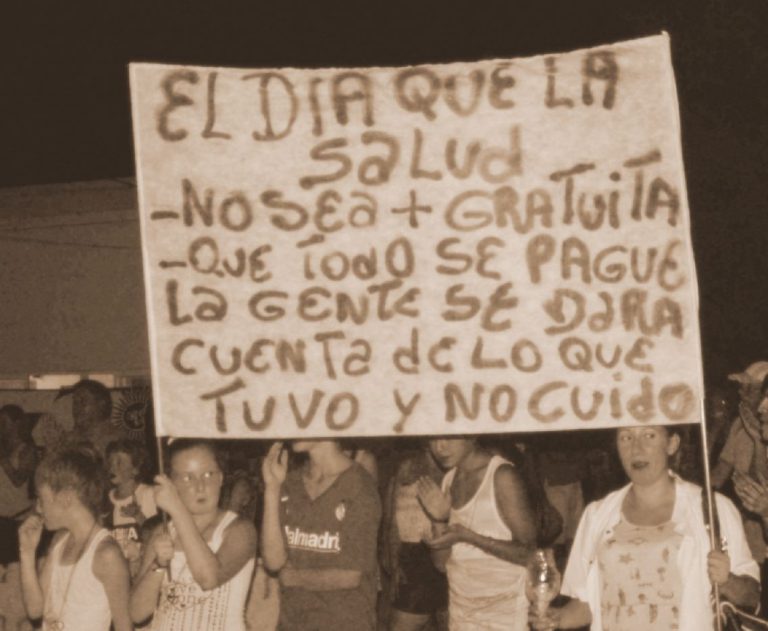 EL DIA QUE LA
SaLUd
-NO SEa + GRATUiTA
-QUE TodO SE PAGUE
La GENTE SE DaRA
CUENTa dE LO QUE
TUVO Y NO CUidO
almadri